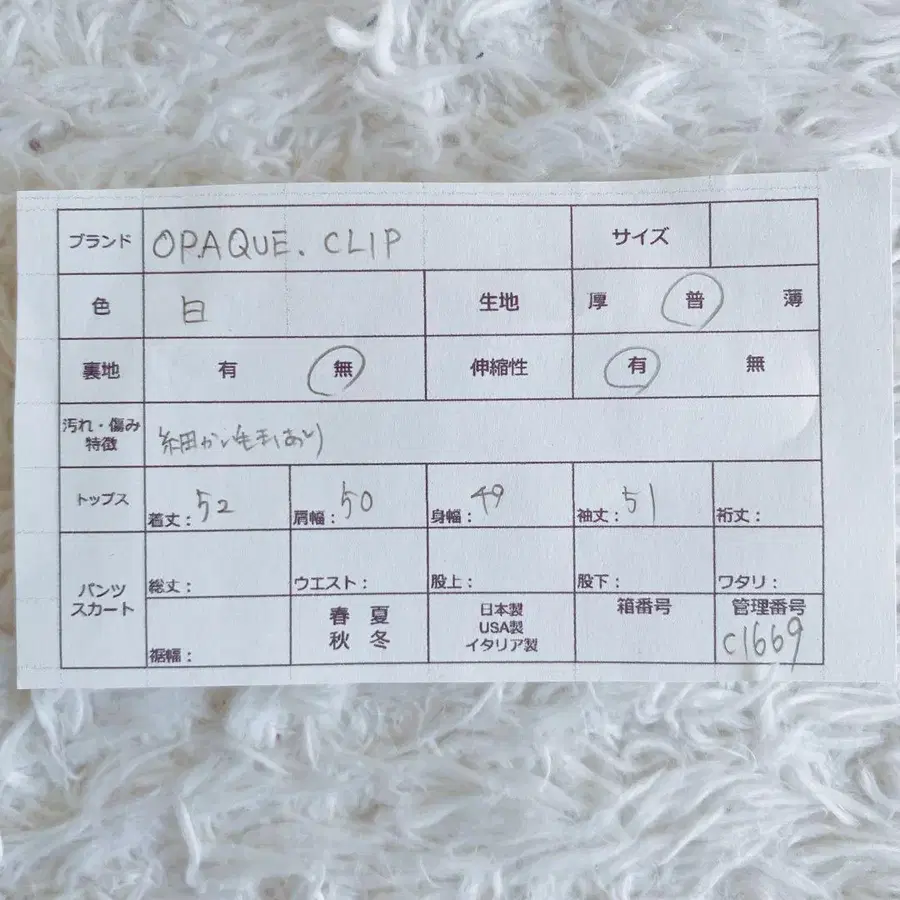 ブランド OPAQUE.CLIP サイズ
色 白 生地 厚 普 薄
裏地 有 無 伸縮性 有 無
汚れ・傷み
特徴
細かい毛玉あり
トップス 着丈：52 肩幅：50 身幅：49 袖丈：51 裄丈：
パンツ
スカート
総丈： ウエスト： 股上： 股下： ワタリ：
裾幅：
春 夏
秋 冬
日本製
USA製
イタリア製
箱番号
管理番号
C1669